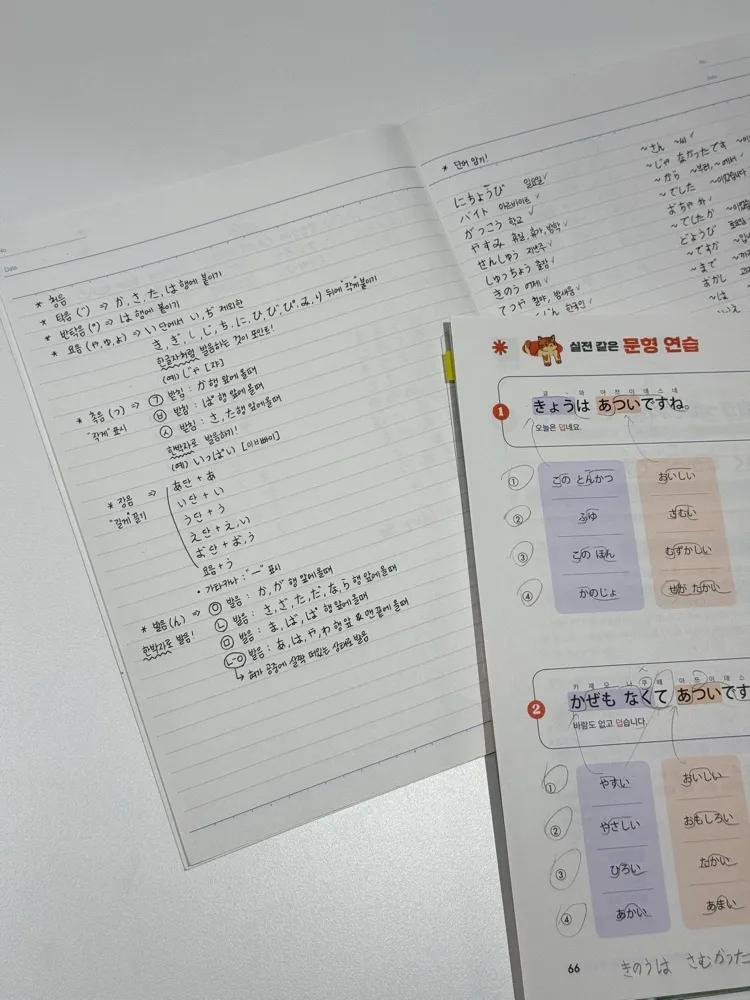 Date
* 청음
* 탁음 (゛) ⇒ か, さ, た, は 행에 붙이기
* 반탁음 (゜) ⇒ は 행에 붙이기
* 요음 (や, ゆ, よ) ⇒ い 단에서 い, ぢ 제외한
き, ぎ, し, じ, ち, に, ひ, び, ぴ, み, り 뒤에 "작게" 붙이기
한글자처럼 발음하는 것이 포인트!
(예) じゃ [쟈]
* 촉음 (っ) ⇒ ㄱ 받침 : か행 앞에 올때
"작게" 표시
ㅂ 받침 : ぱ행 앞에 올때
ㅅ 받침 : さ, た행 앞에 올때
한박자로 발음하기!
(예) いっぱい [이ㅂ빠이]
* 장음 ⇒ あ단 + あ
"길게" 끌기
い단 + い
う단 + う
え단 + え, い
お단 + お, う
요음 + う
• 가타카나 : "ー" 표시
* 발음 (ん) ⇒ ㅇ 발음 : か, が 행 앞에 올때
한박자로 발음!
ㄴ 발음 : さ, ざ, た, だ, な, ら 행 앞에 올때
ㅁ 발음 : ま, ば, ぱ 행 앞에 올때
ㄴ-ㅇ 발음 : あ, は, や, わ 행 앞 & 맨 끝에 올때
↳ 혀가 공중에 살짝 떠있는 상태로 발음
No.
Date
* 단어 암기!
にちようび 일요일
バイト 아르바이트
がっこう 학교
やすみ 휴일, 휴가, 방학
せんしゅう 지난주
しゅっちょう 출장
きのう 어제
てつや 철야, 밤새움
한국인
~さん ~씨
~じゃ なかったです
~から ~부터, ~에서
~でした ~이었습니다
おちゃ 차
~でしたか
どようび 토요일
~ですか
~まで
おかし
~は
いいえ
* 실전 같은 문형 연습
1
쿄-와 아쯔이데스네
きょうは あついですね。
오늘은 덥네요.
① この とんかつ おいしい
② ふゆ さむい
③ この ほん むずかしい
④ かのじょ せが たかい
2
카제모 나쿠떼 아쯔이데스
かぜも なくて あついです
바람도 없고 덥습니다.
① やすい おいしい
② やさしい おもしろい
③ ひろい たかい
④ あかい あまい
66
きのうは さむかった